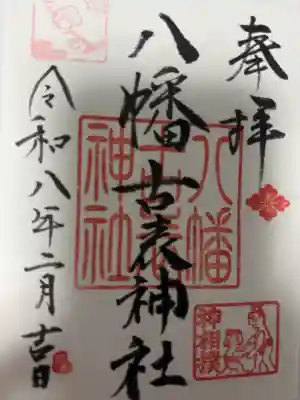 奉拝
八幡古表神社
八幡
古表
神社
神相撲
令和八年二月吉日